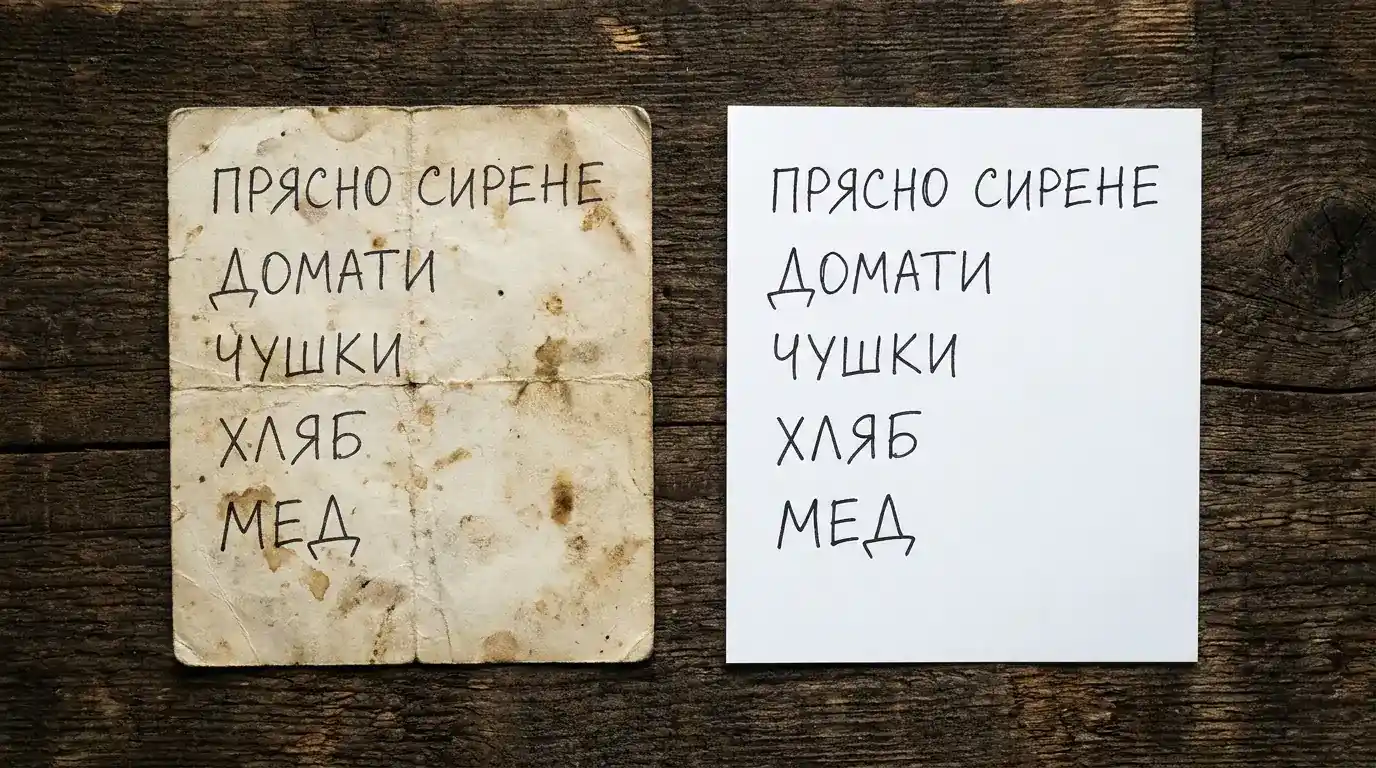 ПРЯСНО СИРЕНЕ
ДОМАТИ
ЧУШКИ
ХЛЯБ
МЕД
ПРЯСНО СИРЕНЕ
ДОМАТИ
ЧУШКИ
ХЛЯБ
МЕД